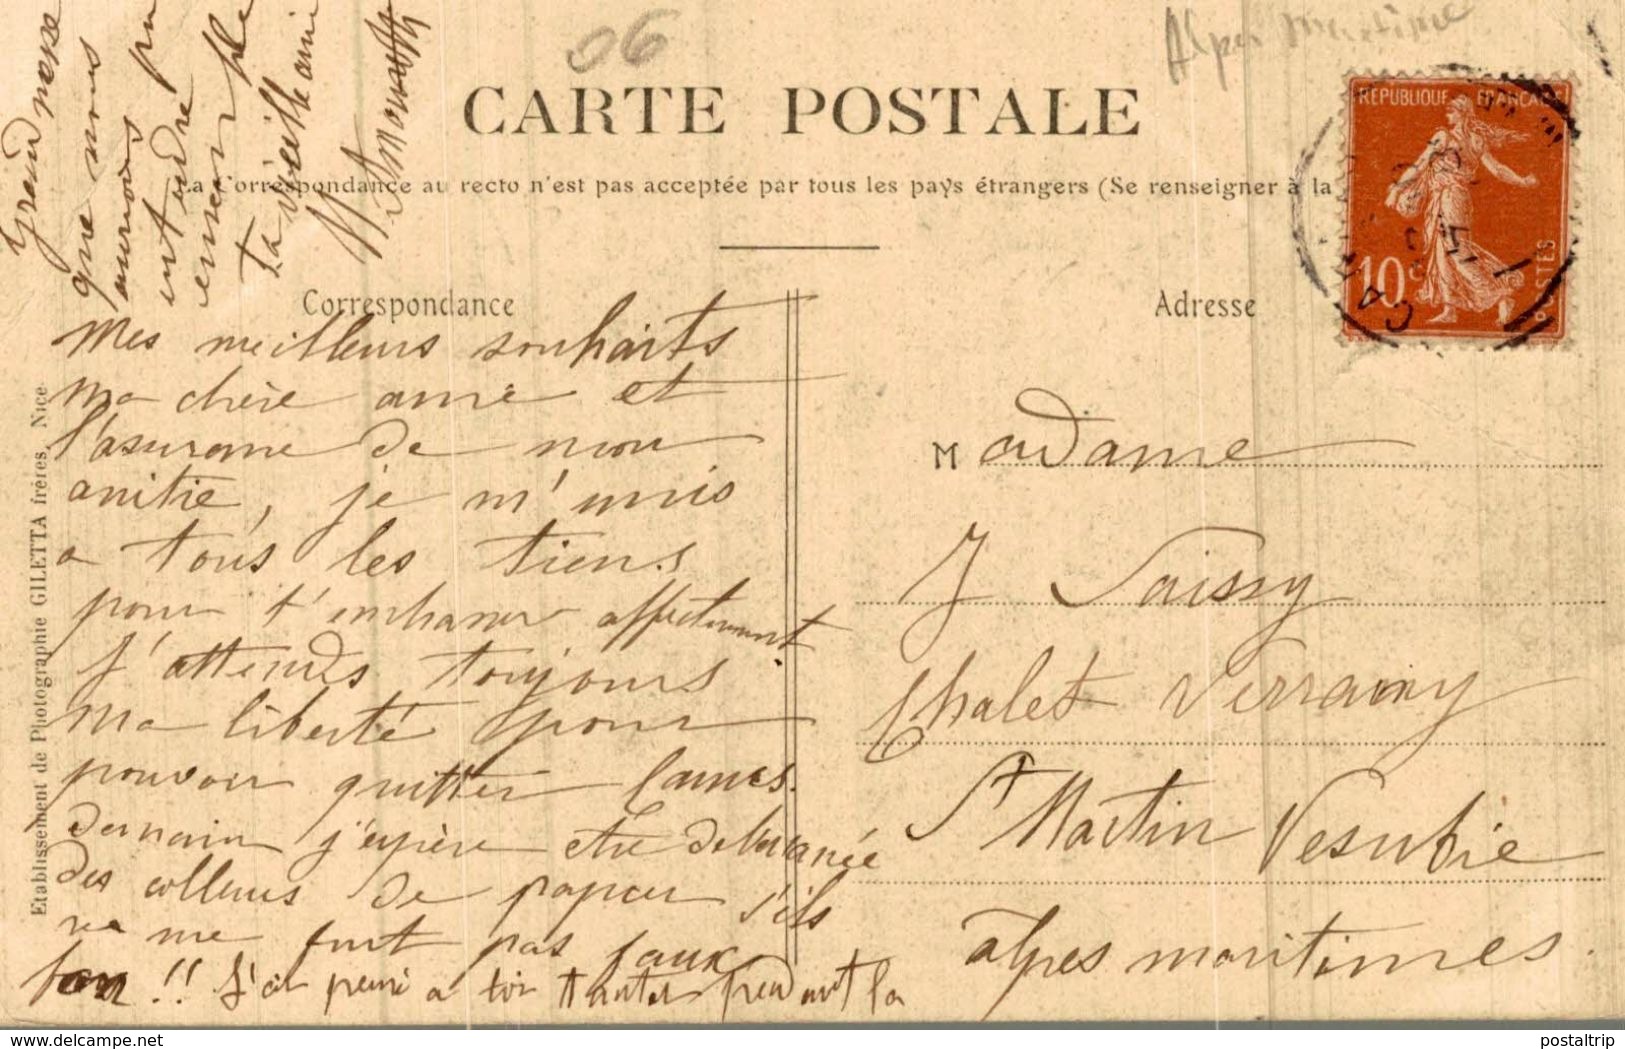 06
Alpes maritime
CARTE POSTALE
La Correspondance au recto n'est pas acceptée par tous les pays étrangers (Se renseigner à la
REPUBLIQUE FRANÇAISE
10c
POSTES
Correspondance
Adresse
Mes meilleurs souhaits
ma chère amie et
l'assurance de mon
amitié, je m'unis
a tous les tiens
pour t'embrasser affectueusement
J'attends toujours
ma liberté pour
pouvoir quitter Cannes.
demain j'espère etre debarassée
des colleurs de papier s'ils
ne me font pas faux
bon !! J'ai pensé a toi tantot pendant la
Grand messe
que nous
aurions pu
entendre
ensemble
Ta vieille amie
Madame
J Saissy
Chalet Verrany
St Martin Vesubie
alpes maritimes.
Etablissement de Photographie GILETTA frères, Nice
postaltrip